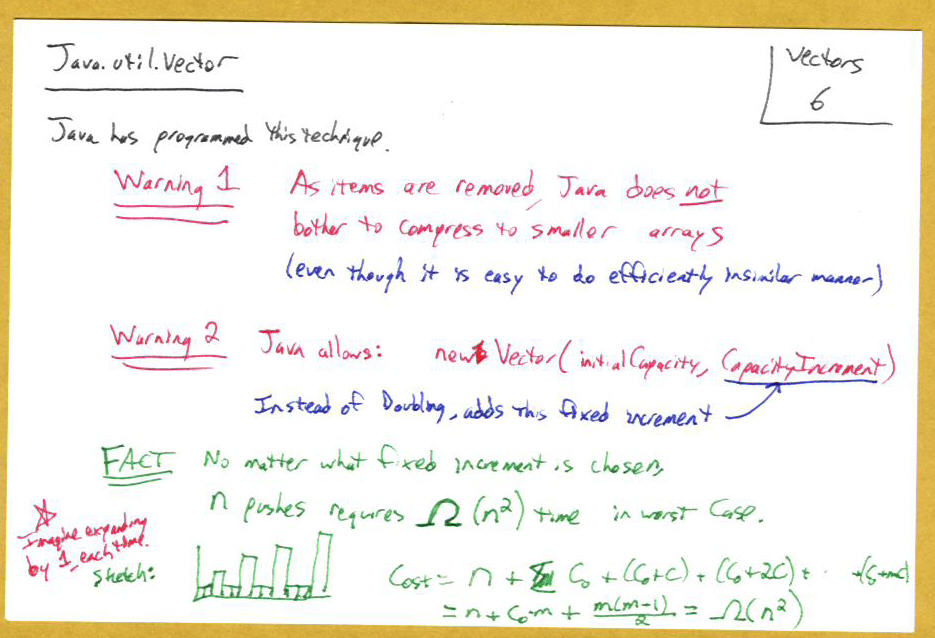 Java.util.Vector
Vectors
6
Java has programmed this technique.
Warning 1 As items are removed, Java does not
bother to compress to smaller arrays
(even though it is easy to do efficiently in similar manner)
Warning 2 Java allows: new Vector(initialCapacity, CapacityIncrement)
Instead of Doubling, adds this fixed increment
FACT No matter what fixed increment is chosen,
n pushes requires Ω(n²) time in worst case.
☆ Imagine expanding
by 1 each time.
Sketch:
Cost = n + C₀ + (C₀+C) + (C₀+2C) + · · +(C₀+mC)
= n + C₀·m + m(m-1)/2 = Ω(n²)